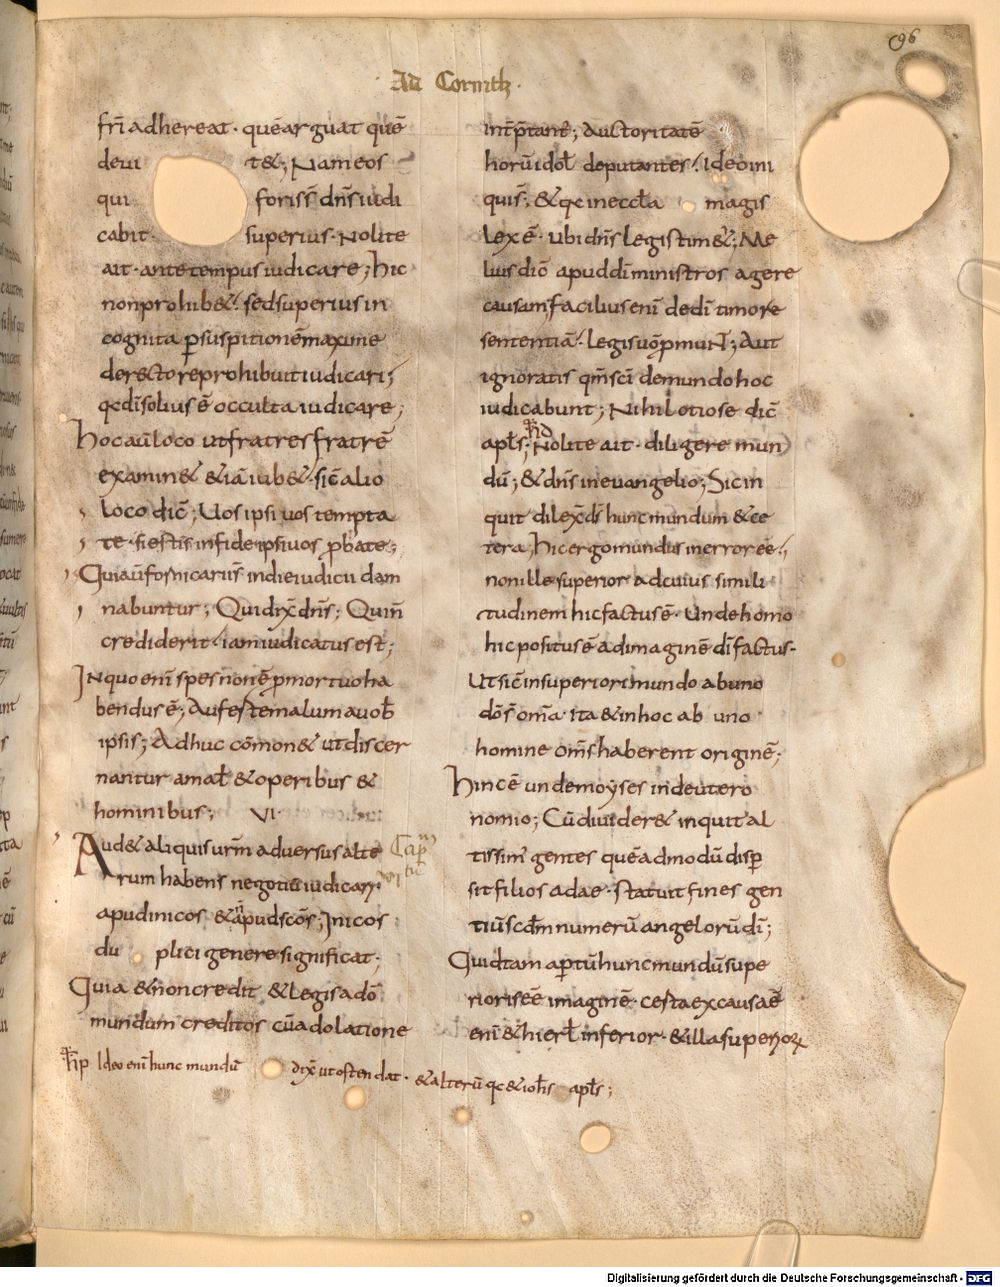 96
Ad Corinth.
fr̄i adhereat · quē arguat quē
devi t&; Nam eos
qui foris s̄ dn̄s iudi
cabit · superius · Nolite
ait · ante tempus iudicare; hic
non prohib&. sed superius in
cognita ꝑ suspitionē maxime
de rectore prohibuit iudicari;
qc dī solius ē occulta iudicare;
hoc aū loco ut fratres fratrē
examin& & iā iub& · sic̄ alio
loco dic̄; Uos ipsi uos tempta
te · si estis in fide ipsi uos ꝓbate;
Quia ū fornicariis in die iudicii dam
nabuntur; Quid dix̄ dn̄s; Qui n̄
crediderit · iam iudicatus est;
IN quo enī spes non ē ꝓ mortuo ha
bendus ē; Auferte malum a uob̄
ipsis; Adhuc cōmon& ut discer
nantur a mał & operibus &
hominibus; VI·
Aud& aliquis urm̄ adversus alte
rum habens negotiū iudicari
apud inicos & n̄ apud scōs; Inicos
du plici genere significat;
Quia & non credit & legis adō
mundum creditos cū adolatione
int̄p̄tant̄; Auctoritatē
horū idol̄ deputantes. Ideo ini
quis; & qc in eccła magis
lex ē · ubi dn̄s legis tim&; Me
lius dic̄ apud dī ministros agere
causam facilius enī de dī timore
sententiā · legis uō ꝓmuNt; Aut
ignoratis qm̄ sci de mundo hoc
iudicabunt; Nihil otiose dic̄
apl̄s; Nolite ait · diligere mun
dū; & dn̄s in euangelio; Sic in
quit dilex̄ ds̄ hunc mundum & ce
tera; hic ergo mundus in errore ē;
non ille superior ad cuius simili
tudinem hic factus ē · Unde homo
hic positus ē ad imaginē dī factus ·
Ut sic̄ in superiori mundo ab uno
dō s̄ om̄a · ita & in hoc ab uno
homine om̄s haberent originē;
hinc ē unde moyses in deutero
nomio; Cū divider& inquit al
tissim' gentes quēadmodū disꝑ
sit filios adae · statuit fines gen
tiū scdm̄ numerū angelorū dī;
Quid tam aꝑtū hunc mundū supe
rioris eē imaginē · cesta ex causa ē
enī & hierl̄ inferior · & illa superior
Ideo enī hunc mundū dix̄ ut ostendat · & alterū qc & ioh̄s apl̄s;
Digitalisierung gefördert durch die Deutsche Forschungsgemeinschaft - DFG